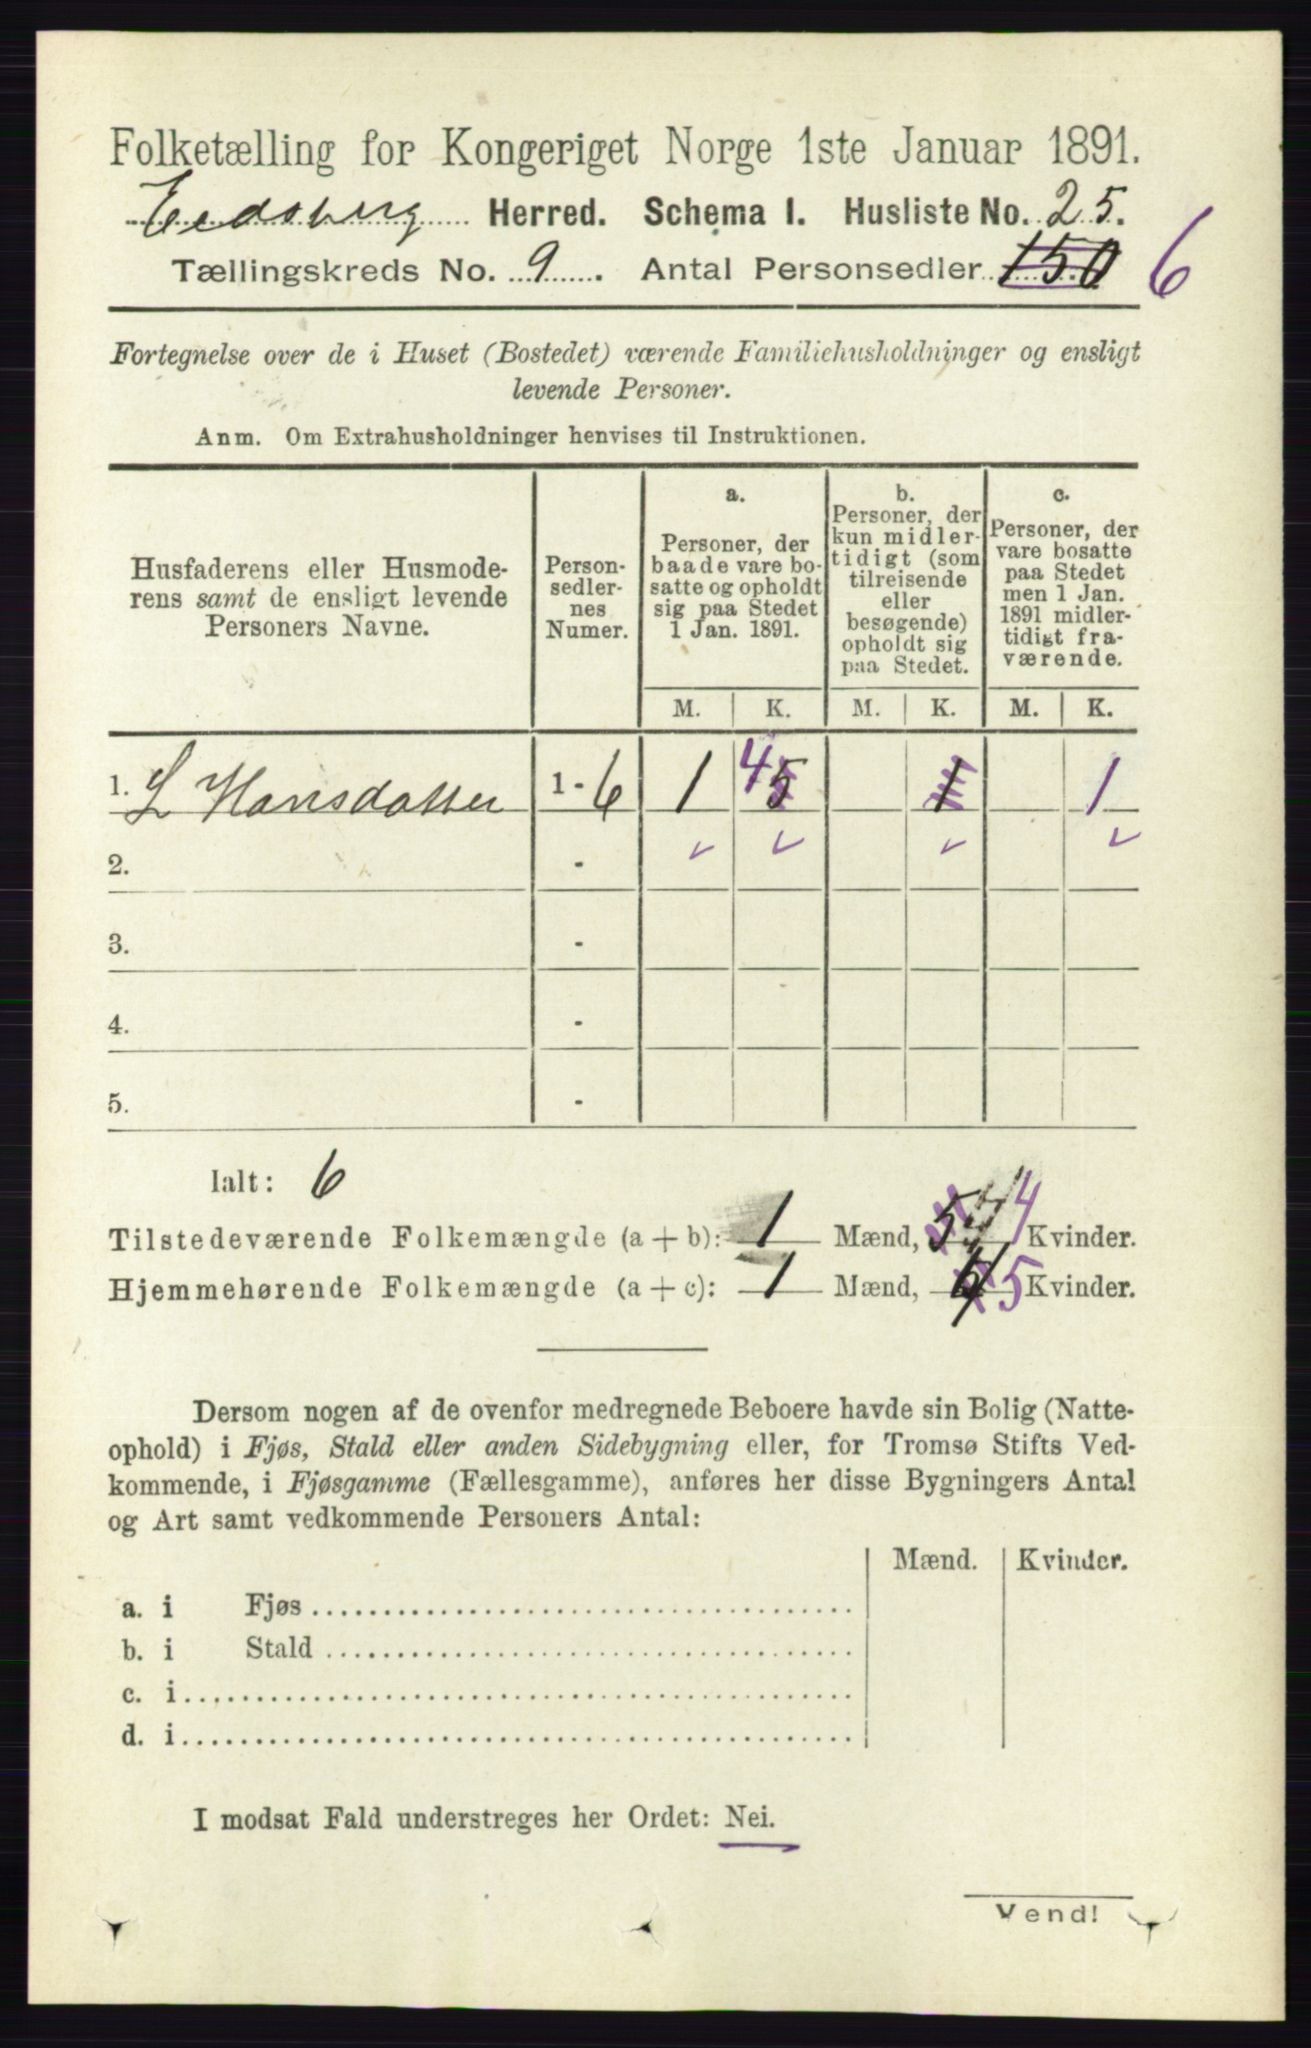 Folketælling for Kongeriget Norge 1ste Januar 1891.
Eidsberg Herred. Schema I. Husliste No. 25.
Tællingskreds No. 9. Antal Personsedler 150 6
Fortegnelse over de i Huset (Bostedet) værende Familiehusholdninger og ensligt
levende Personer.
Anm. Om Extrahusholdninger henvises til Instruktionen.
Husfaderens eller Husmode-
rens samt de ensligt levende
Personers Navne.
Person-
sedler-
nes
Numer.
a.
Personer, der
baade vare bo-
satte og opholdt
sig paa Stedet
1 Jan. 1891.
b.
Personer, der
kun midler-
tidigt (som
tilreisende
eller
besøgende)
opholdt sig
paa Stedet.
c.
Personer, der
vare bosatte
paa Stedet
men 1 Jan.
1891 midler-
tidigt fra-
værende.
M. K. M. K. M. K.
1. L Hansdatter 1 - 6 1 4 5 1 1
2. -
3. -
4. -
5. -
Ialt: 6
Tilstedeværende Folkemængde (a + b): 1 Mænd, 5 4 Kvinder.
Hjemmehørende Folkemængde (a + c): 1 Mænd, 5 Kvinder.
Dersom nogen af de ovenfor medregnede Beboere havde sin Bolig (Natte-
ophold) i Fjøs, Stald eller anden Sidebygning eller, for Tromsø Stifts Ved-
kommende, i Fjøsgamme (Fællesgamme), anføres her disse Bygningers Antal
og Art samt vedkommende Personers Antal:
Mænd. Kvinder.
a. i Fjøs
b. i Stald
c. i
d. i
I modsat Fald understreges her Ordet: Nei.
Vend!